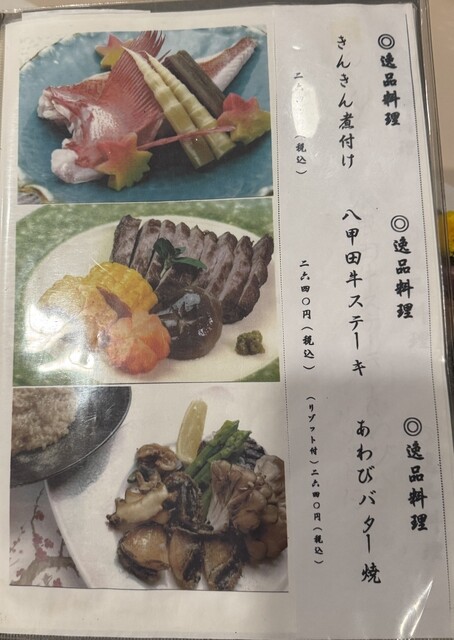 ◎逸品料理
きんきん煮付け
(税込)
◎逸品料理
八甲田牛ステーキ
二六四〇円(税込)
◎逸品料理
あわびバター焼
(リゾット付)二六四〇円(税込)